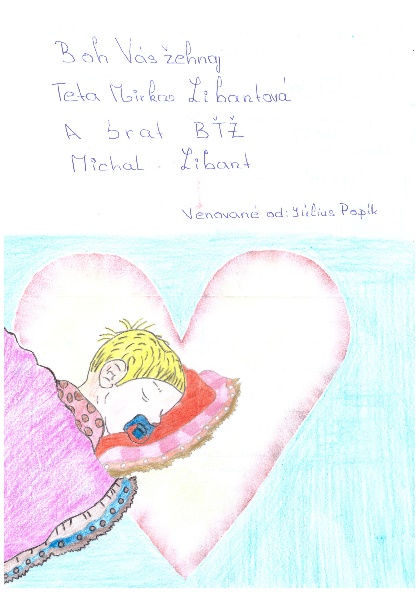 Boh Vás žehnaj
Teta Mirka Libantová
A brat BŤŽ
Michal Libant
Venované od: Július Popík